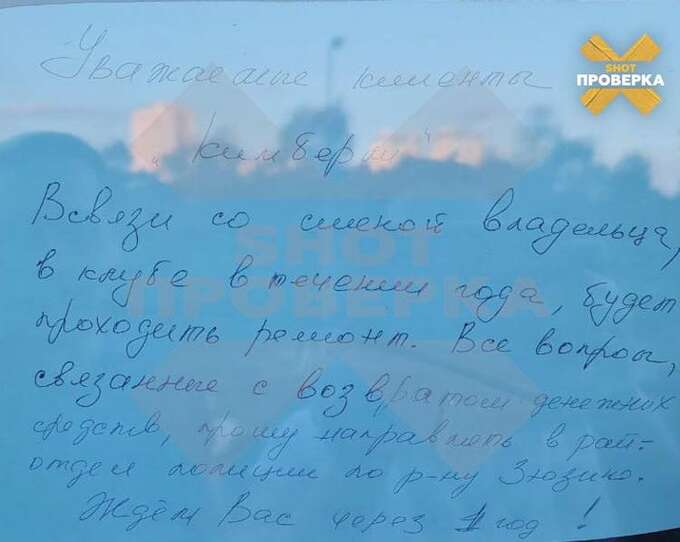 SHOT
ПРОВЕРКА
Уважаемые клиенты
„Кимберли"
Всвязи со сменой владельца,
в клубе в течении года, будет
проходить ремонт. Все вопросы,
связанные с возвратом денежных
средств, прошу направлять в рай-
отдел полиции по р-ну Зюзино.
Ждём Вас через 1 год!
SHOT
ПРОВЕРКА